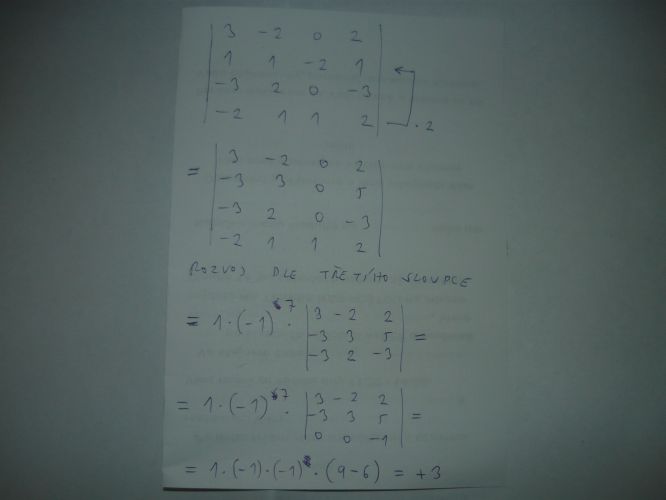 | 3 -2 0 2 |
| 1 1 -2 1 |
| -3 2 0 -3 |
| -2 1 1 2 | · 2
= | 3 -2 0 2 |
| -3 3 0 5 |
| -3 2 0 -3 |
| -2 1 1 2 |
ROZVOJ DLE TŘETÍHO SLOUPCE
= 1·(-1)^7 · | 3 -2 2 |
| -3 3 5 | =
| -3 2 -3 |
= 1·(-1)^7 · | 3 -2 2 |
| -3 3 5 | =
| 0 0 -1 |
= 1·(-1)·(-1) · (9-6) = +3